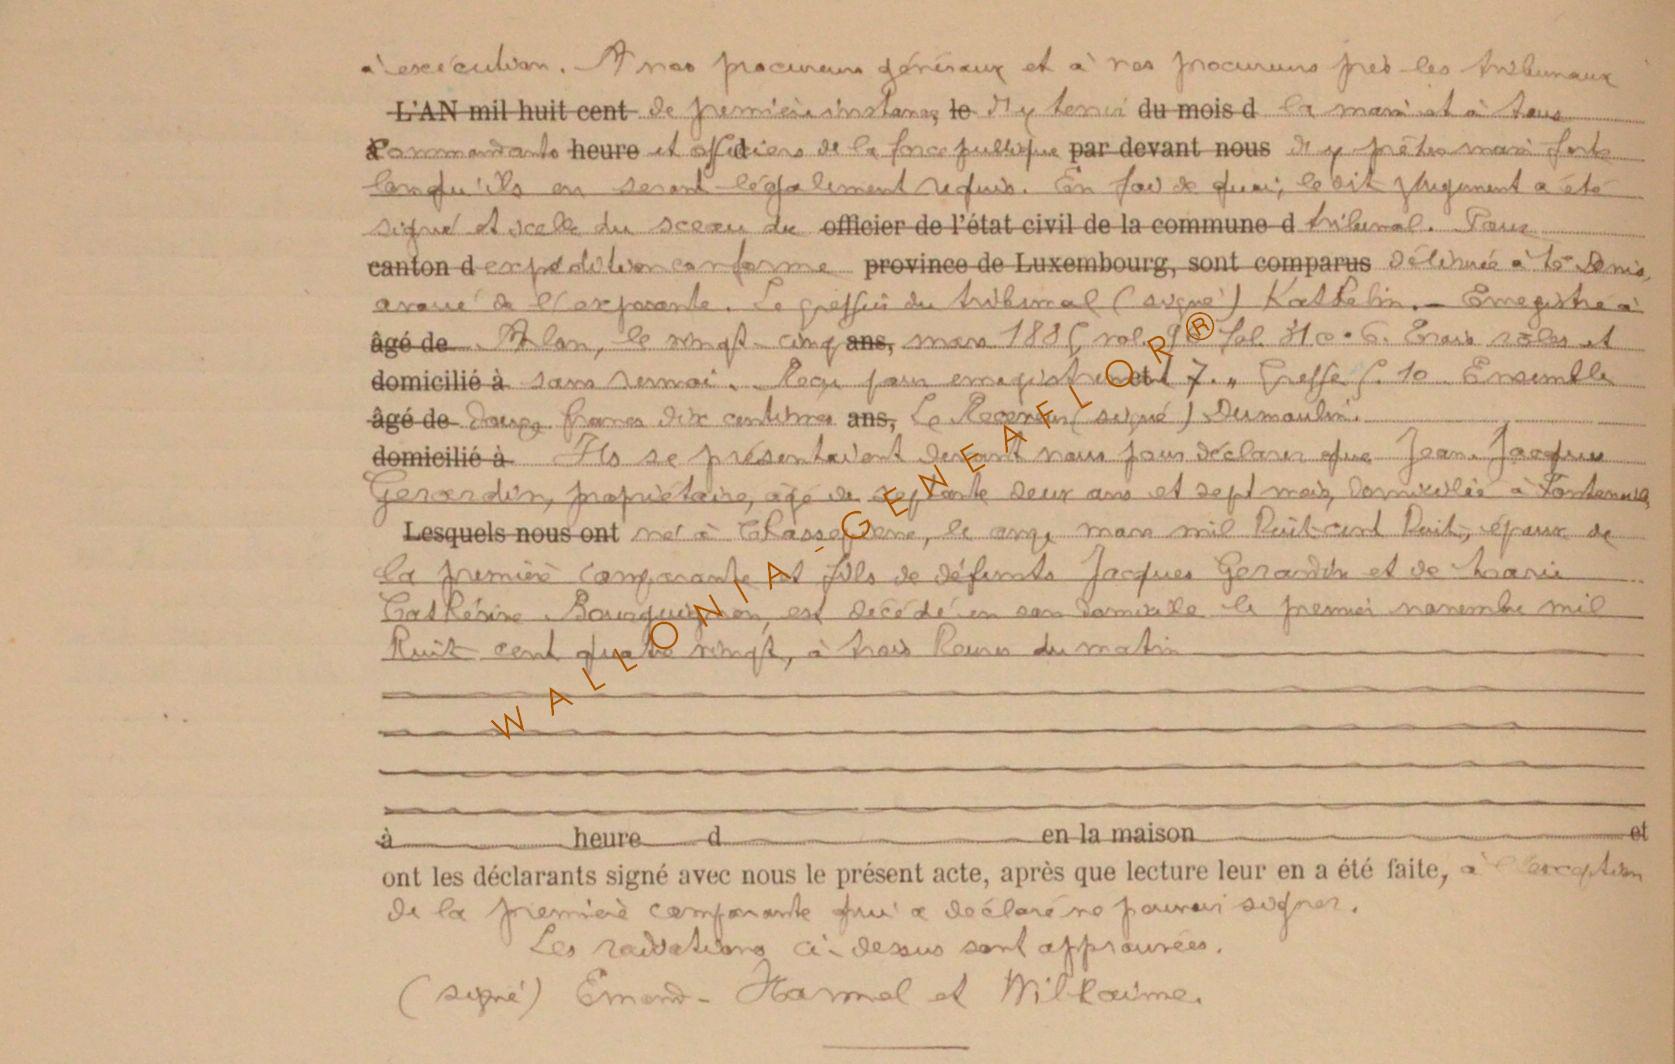 à exécution. A nos procureurs généraux et à nos procureurs près les tribunaux
L'AN mil huit cent de première instance, le d'y tenir du mois d la main et à tous
à Commandants heure et officiers d de la force publique par devant nous d'y prêter main forte
lorsqu'ils en seront légalement requis. En foi de quoi, le dit jugement a été
signé et scellé du sceau du officier de l'état civil de la commune d tribunal. Pour
canton d expédition conforme province de Luxembourg, sont comparus délivrée à
avoué de l'exposante. Le greffier du tribunal (signé) Kathelin. - Enregistré à
âgé de Arlon, le vingt-cinq ans, mars 188 vol. fol. 31 c. 6. Trois rôles et
domicilié à sans renvoi. Reçu pour enregistrement et 7. " Greffe 5. 10. Ensemble
âgé de douze francs dix centimes ans, Le Receveur (signé) Dumoulin.
domicilié à Ils se présentaient devant nous pour déclarer que Jean-Jacques
Gerardin, propriétaire, âgé de septante deux ans et sept mois, domicilié à Fontenoille,
Lesquels nous ont né à Chassepierre, le onze mars mil huit cent huit, époux de
la première comparante et fils de défunts Jacques Gerardin et de Marie
Cathérine Bourguignon, est décédé en son domicile le premier novembre mil
huit cent quatre vingt, à trois heures du matin
à heure d en la maison et
ont les déclarants signé avec nous le présent acte, après que lecture leur en a été faite, à l'exception
de la première comparante qui a déclaré ne pouvoir signer.
Les radiations ci-dessus sont approuvées.
(signé) Emond - Hamel et Wilkaime.
WALLONIA-GENEAFLOR®